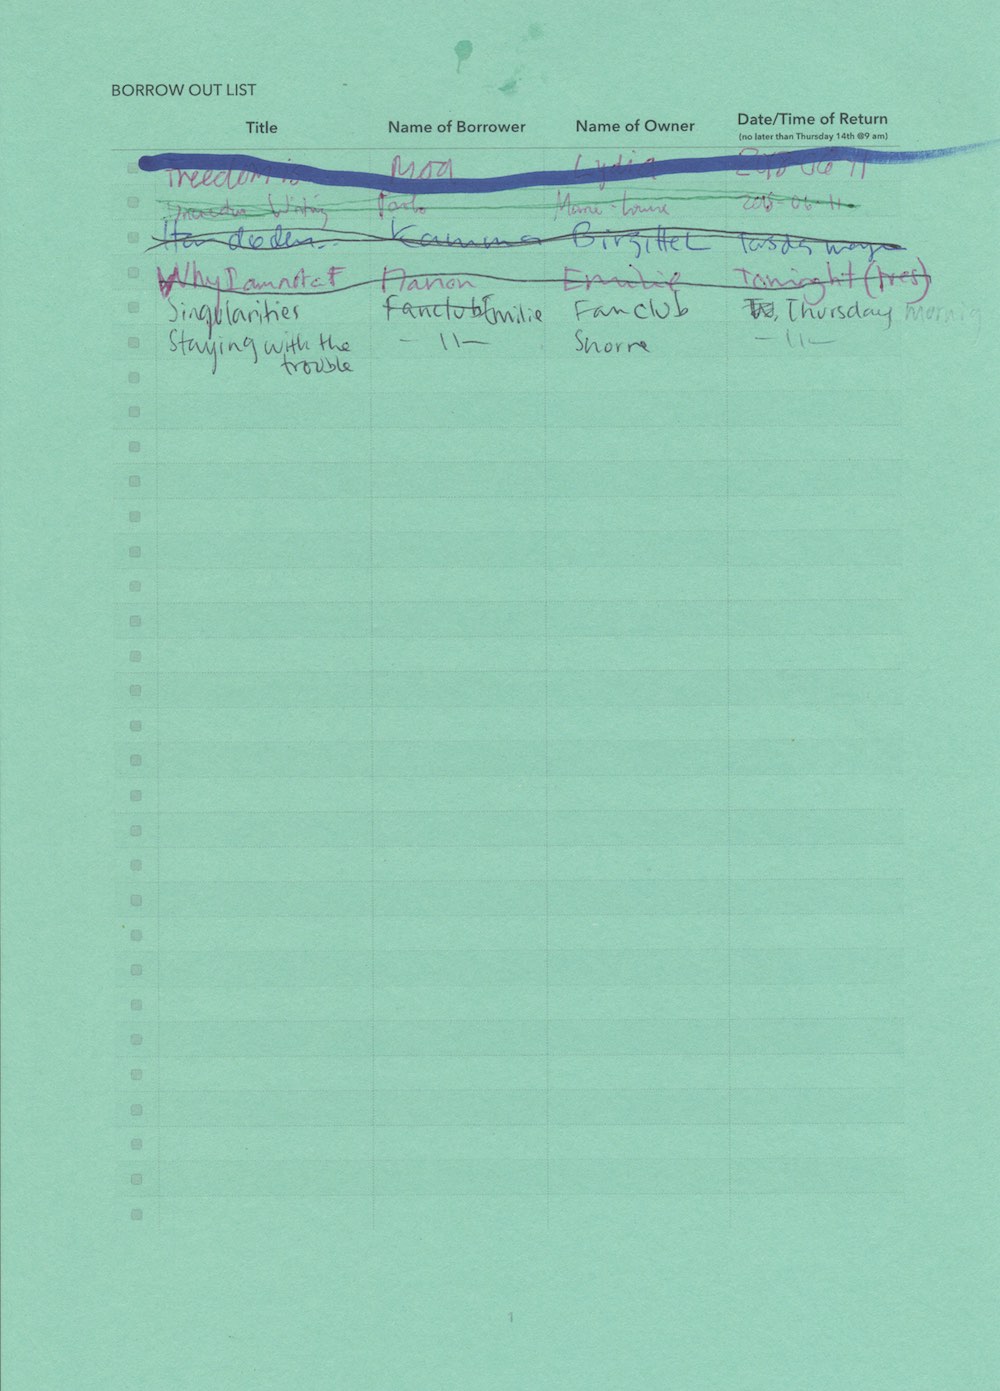 BORROW OUT LIST
Title Name of Borrower Name of Owner Date/Time of Return
(no later than Thursday 14th @9 am)
Freedom is Moa Lydia
Writing Pablo Marie-Louise 2018-06-11
Kamma Birgitte
Why I am not a F Manon Emilie Tonight (tues)
Singularities Fanclub Emilie Fanclub Thursday morning
Staying with the — 11 — Snorre — 11 —
trouble
1